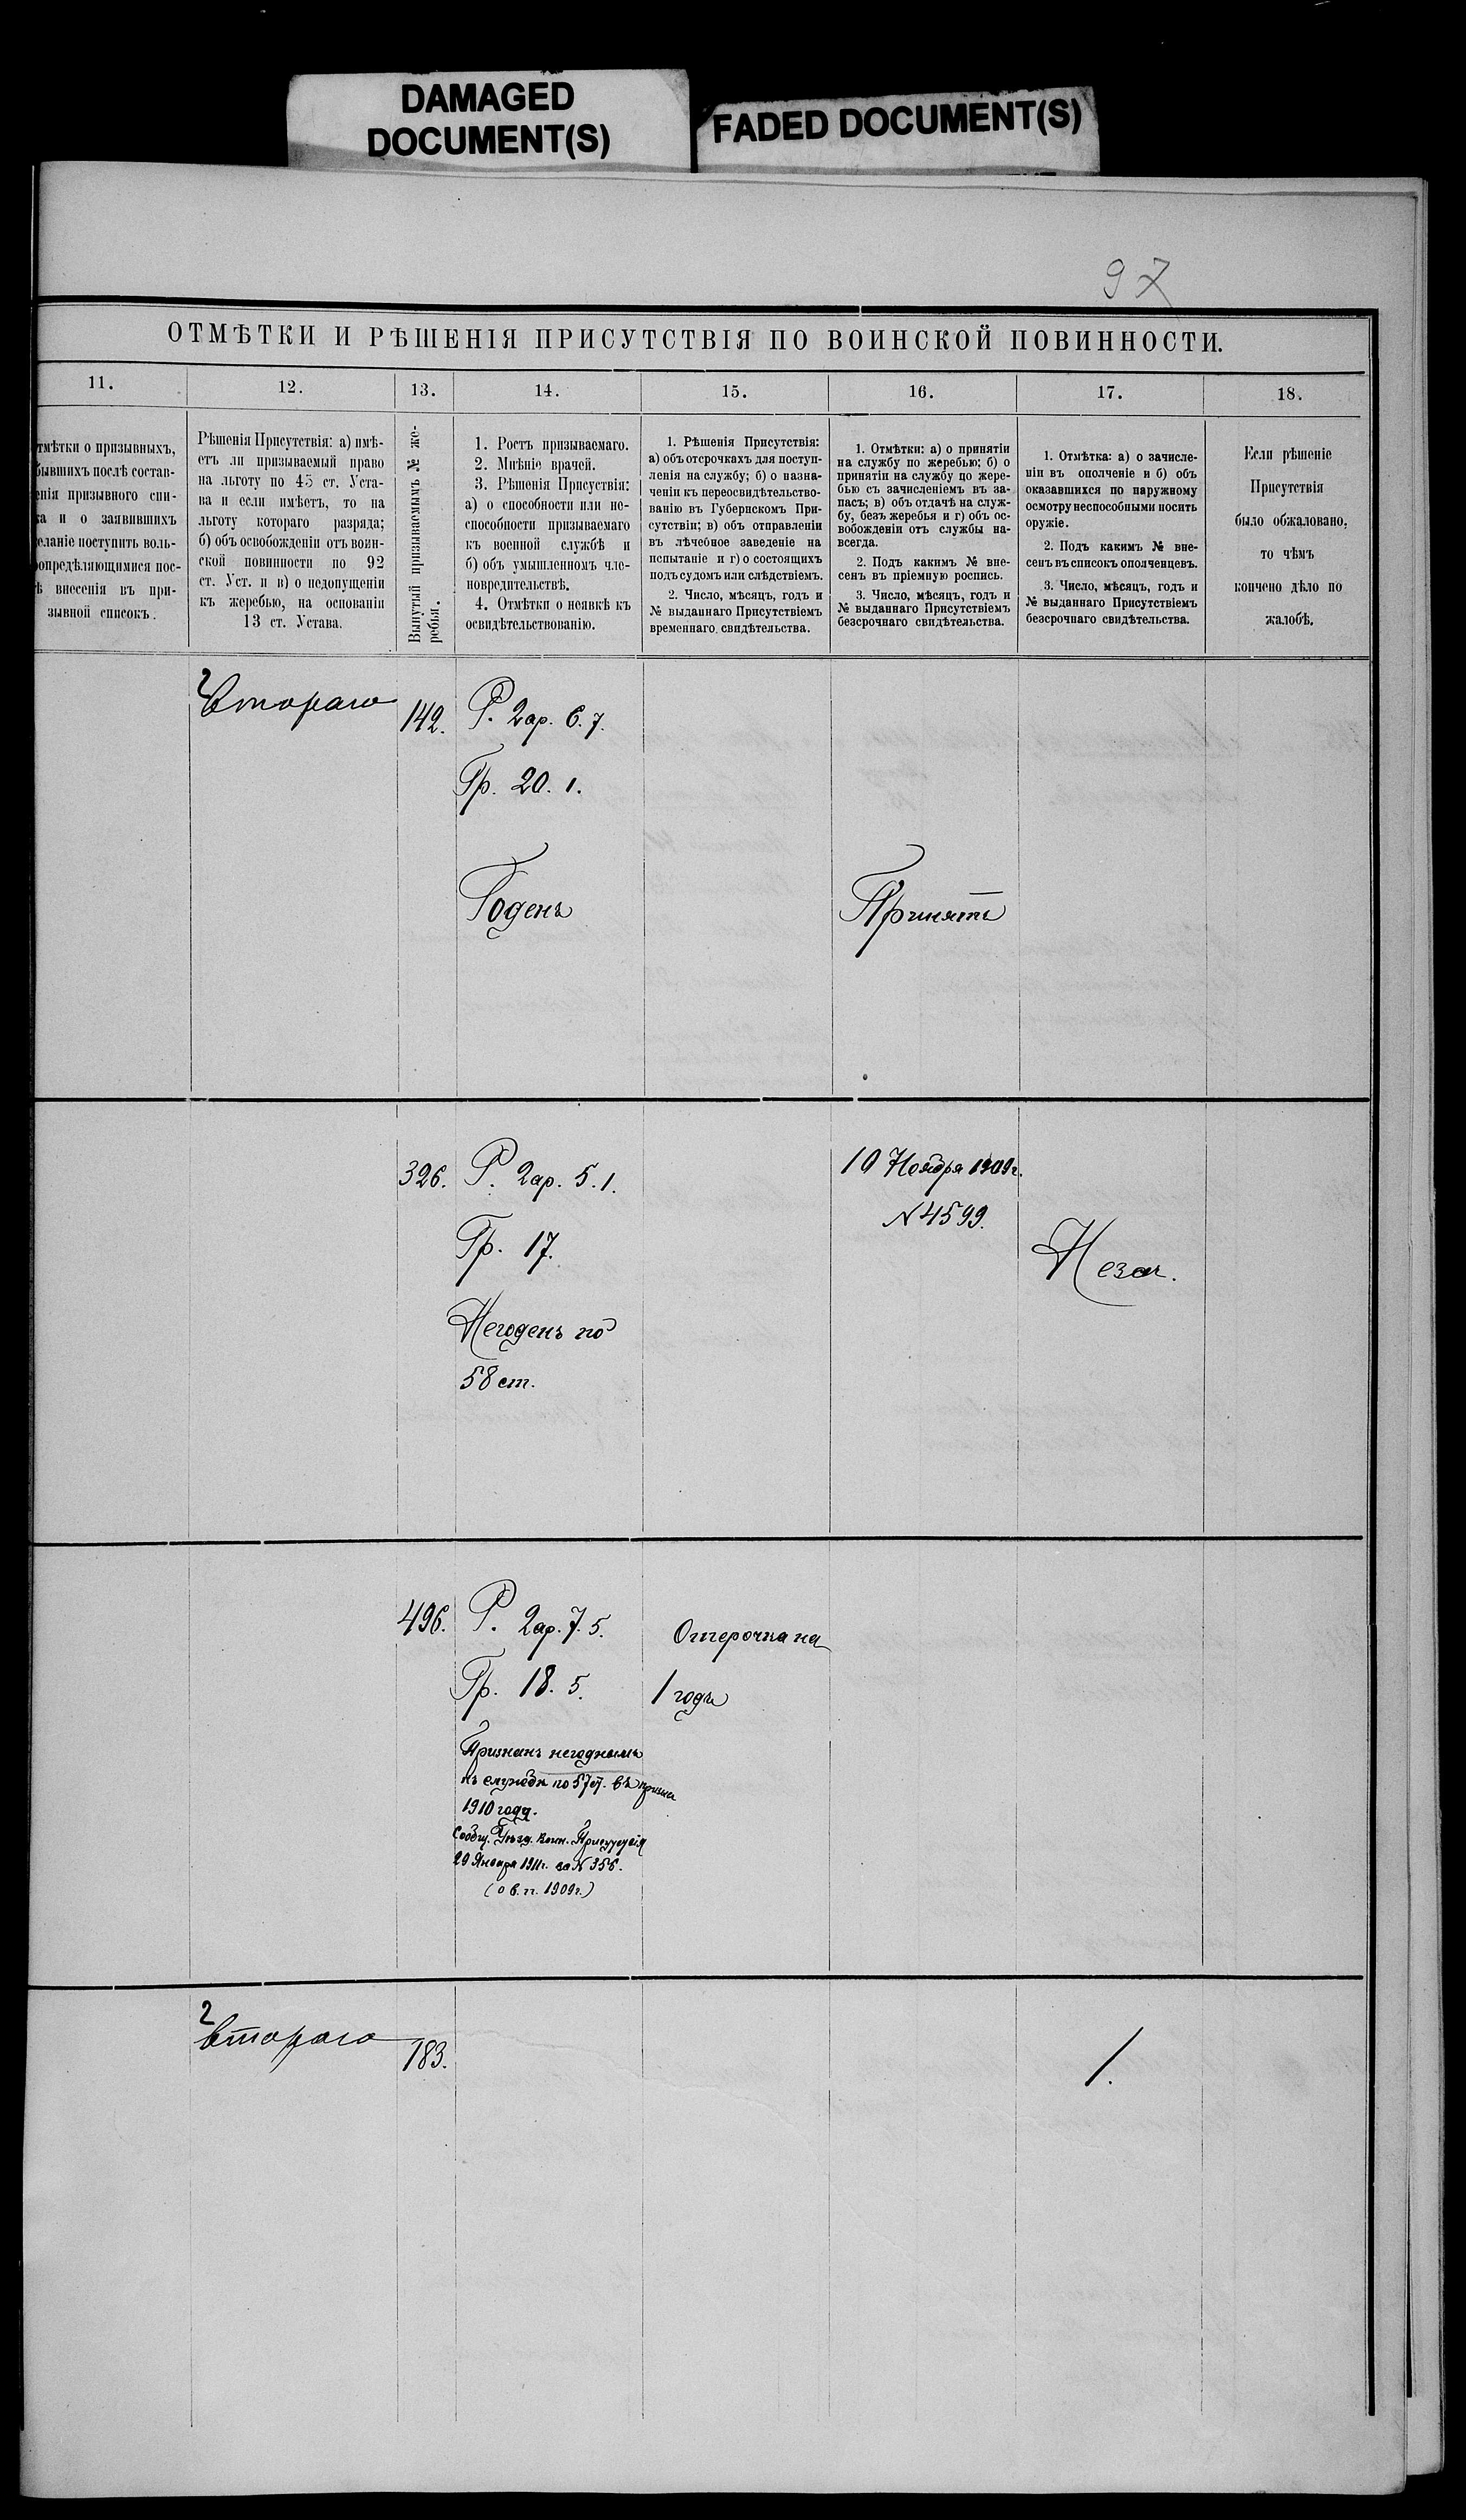 DAMAGED
DOCUMENT(S)
FADED DOCUMENT(S)
97
ОТМѢТКИ И РѢШЕНІЯ ПРИСУТСТВІЯ ПО ВОИНСКОЙ ПОВИННОСТИ.
11.
12.
13.
14.
15.
16.
17.
18.
тмѣтки о призывныхъ,
бывшихъ послѣ состав-
енія призывного спи-
ка и о заявившихъ
еланіе поступить воль-
опредѣляющимися пос-
ѣ внесенія въ при-
зывной списокъ.
Рѣшенія Присутствія: а) имѣ-
етъ ли призываемый право
на льготу по 45 ст. Уста-
ва и если имѣетъ, то на
льготу котораго разряда;
б) объ освобожденіи отъ воин-
ской повинности по 92
ст. Уст. и в) о недопущеніи
къ жеребью, на основаніи
13 ст. Устава.
Вынутый призываемымъ № же-
ребья.
1. Ростъ призываемаго.
2. Мнѣніе врачей.
3. Рѣшенія Присутствія:
а) о способности или не-
способности призываемаго
къ военной службѣ и
б) объ умышленномъ чле-
новредительствѣ.
4. Отмѣтки о неявкѣ къ
освидѣтельствованію.
1. Рѣшенія Присутствія:
а) объ отсрочкахъ для поступ-
ленія на службу; б) о назна-
ченіи къ переосвидѣтельство-
ванію въ Губернскомъ При-
сутствіи; в) объ отправленіи
въ лѣчебное заведеніе на
испытаніе и г) о состоящихъ
подъ судомъ или слѣдствіемъ.
2. Число, мѣсяцъ, годъ и
№ выданнаго Присутствіемъ
временнаго свидѣтельства.
1. Отмѣтки: а) о принятіи
на службу по жеребью; б) о
принятіи на службу по жере-
бью съ зачисленіемъ въ за-
пасъ; в) объ отдачѣ на служ-
бу, безъ жеребья и г) объ ос-
вобожденіи отъ службы на-
всегда.
2. Подъ какимъ № вне-
сенъ въ пріемную роспись.
3. Число, мѣсяцъ, годъ и
№ выданнаго Присутствіемъ
безсрочнаго свидѣтельства.
1. Отмѣтка: а) о зачисле-
ніи въ ополченіе и б) объ
оказавшихся по наружному
осмотру неспособными носить
оружіе.
2. Подъ какимъ № вне-
сенъ въ списокъ ополченцевъ.
3. Число, мѣсяцъ, годъ и
№ выданнаго Присутствіемъ
безсрочнаго свидѣтельства.
Если рѣшеніе
Присутствія
было обжаловано,
то чѣмъ
кончено дѣло по
жалобѣ.
2
Втораго
142.
Р. 2ар. 6. 7.
Гр. 20. 1.
Годенъ
Принятъ
326.
Р. 2ар. 5. 1.
Гр. 17.
Негоденъ по
58 ст.
10 Ноября 1909г.
№ 4599.
Незач.
496.
Р. 2ар. 7. 5.
Гр. 18. 5.
Отсрочка на
1 годъ
Признанъ негоднымъ
къ службѣ по 57 ст. въ призывъ
1910 года.
Сообщ. Уѣзд. Воин. Присутствія
29 Января 1911г. за № 356.
2
Втораго
183.
1.